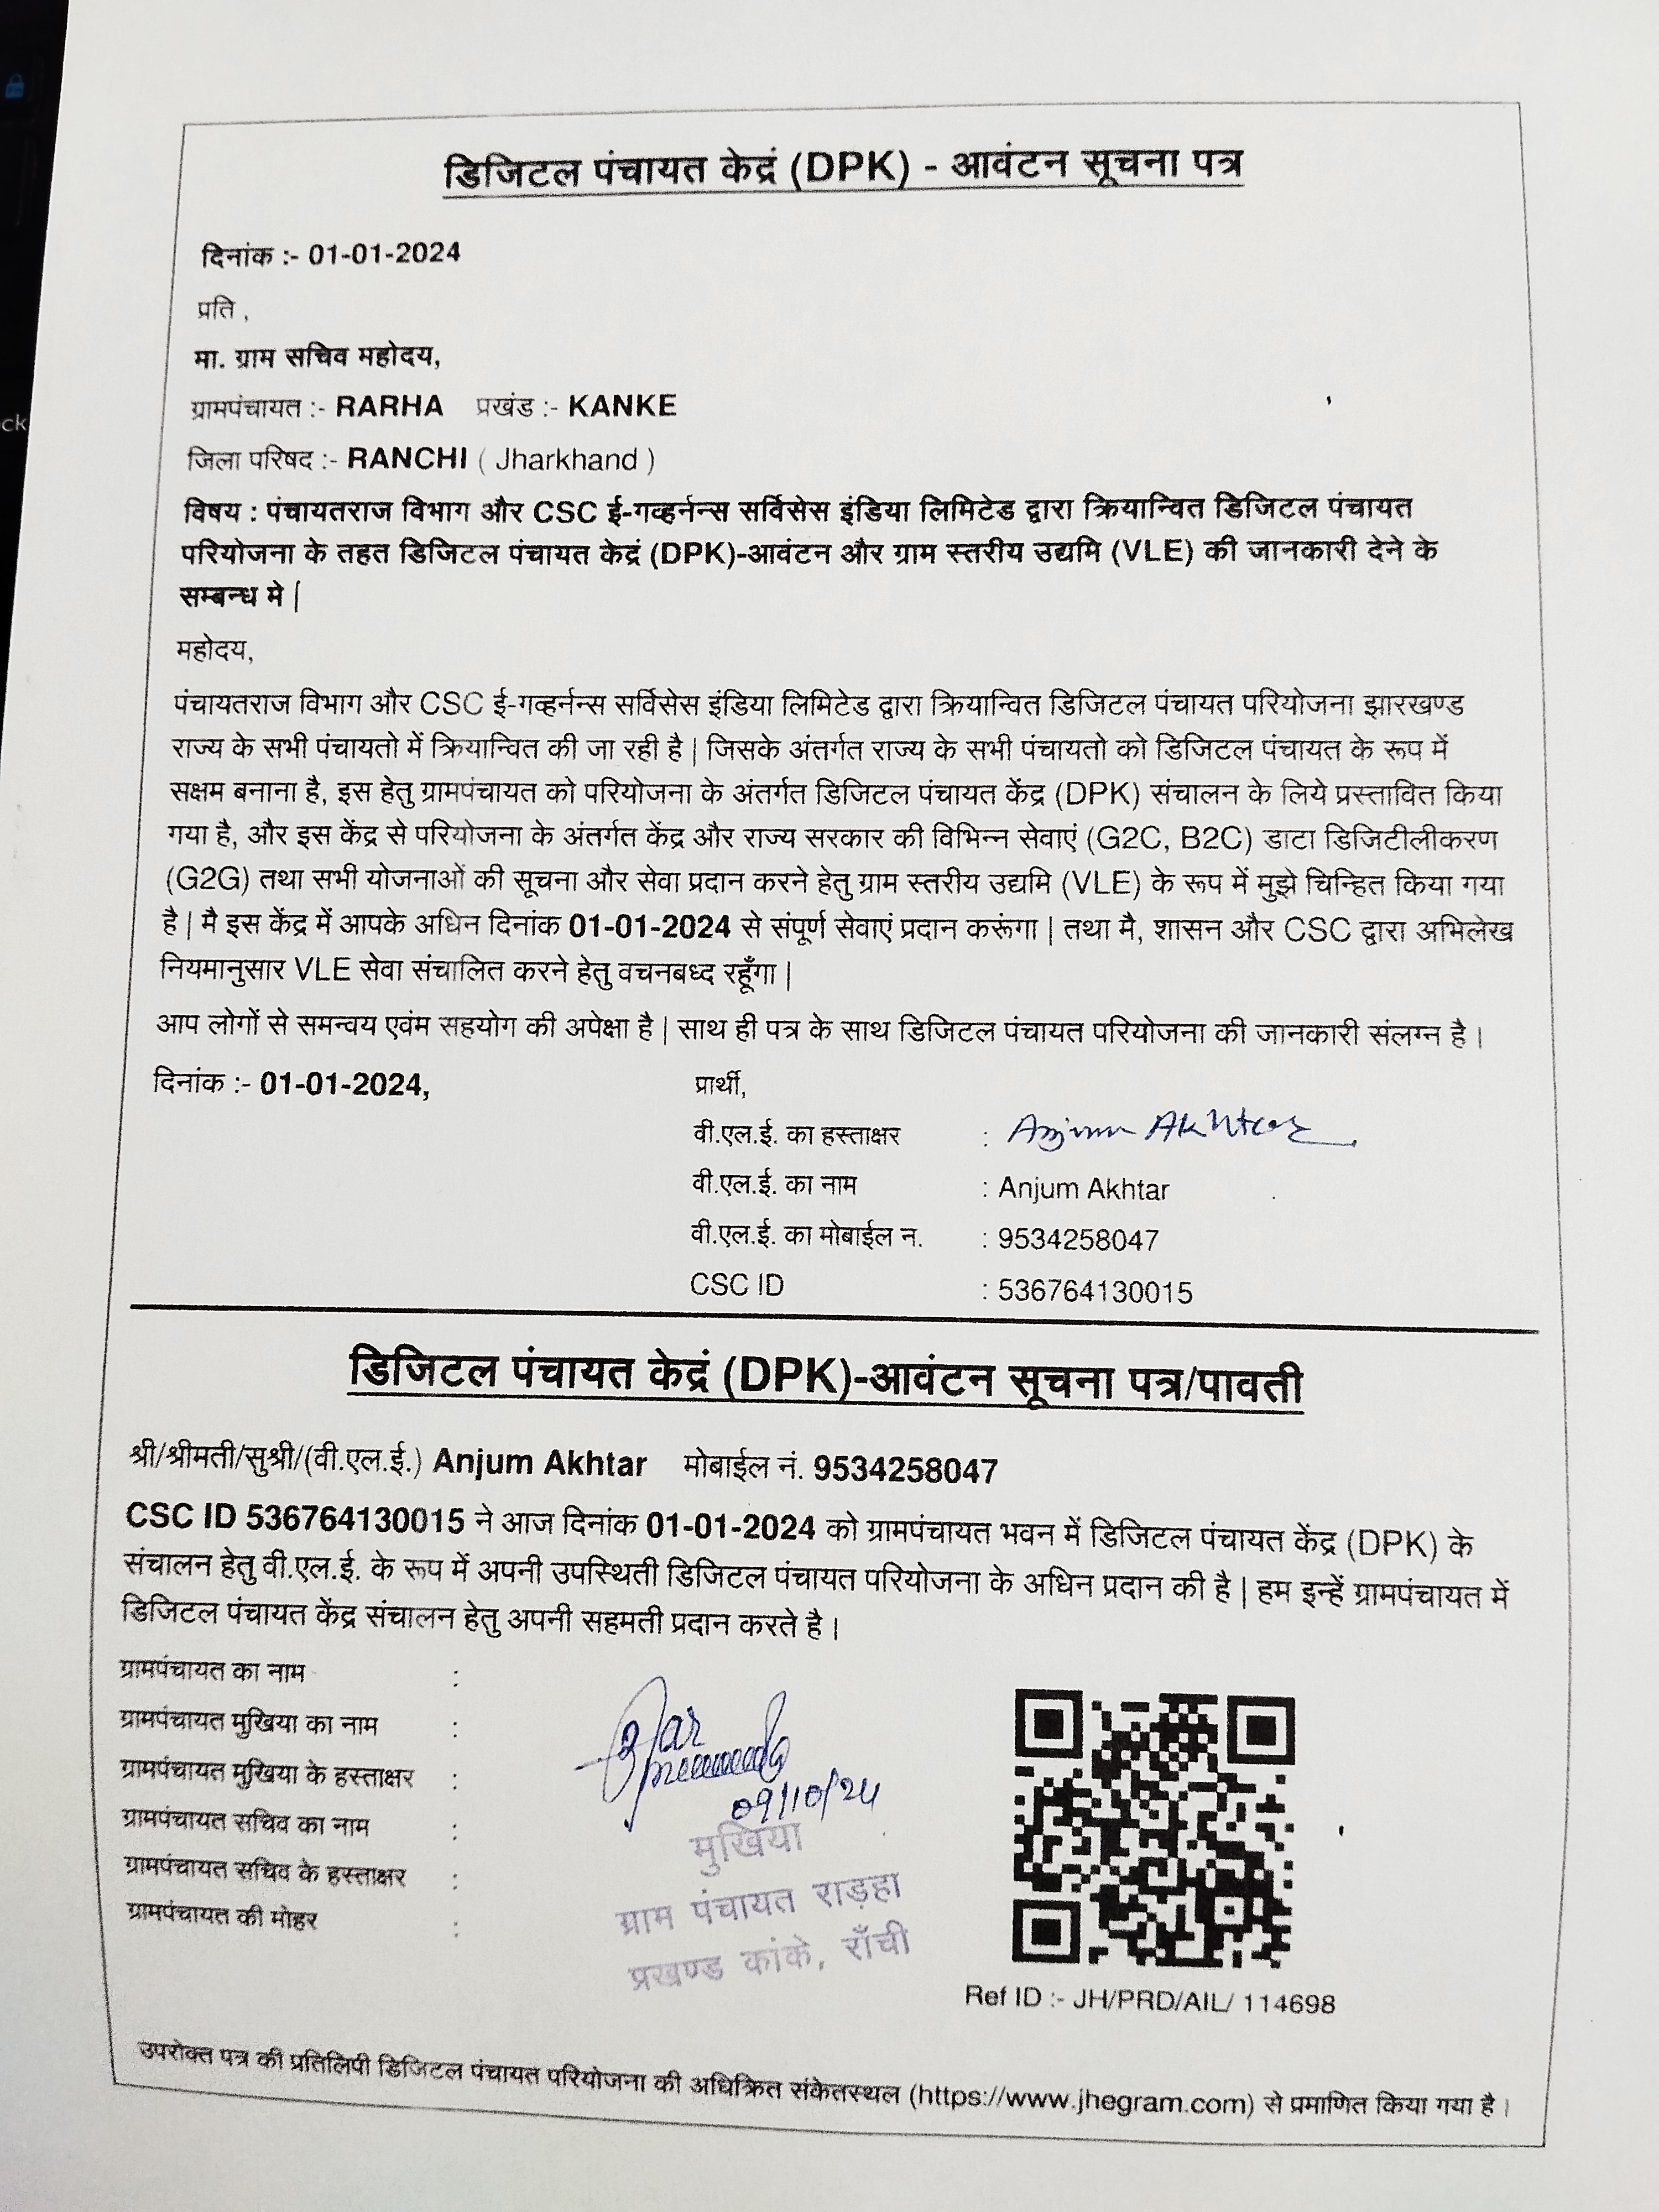 डिजिटल पंचायत केद्रं (DPK) - आवंटन सूचना पत्र
दिनांक :- 01-01-2024
प्रति ,
मा. ग्राम सचिव महोदय,
ग्रामपंचायत :- RARHA प्रखंड :- KANKE
जिला परिषद :- RANCHI ( Jharkhand )
विषय : पंचायतराज विभाग और CSC ई-गव्हर्नन्स सर्विसेस इंडिया लिमिटेड द्वारा क्रियान्वित डिजिटल पंचायत
परियोजना के तहत डिजिटल पंचायत केद्रं (DPK)-आवंटन और ग्राम स्तरीय उद्यमि (VLE) की जानकारी देने के
सम्बन्ध मे |
महोदय,
पंचायतराज विभाग और CSC ई-गव्हर्नन्स सर्विसेस इंडिया लिमिटेड द्वारा क्रियान्वित डिजिटल पंचायत परियोजना झारखण्ड
राज्य के सभी पंचायतो में क्रियान्वित की जा रही है | जिसके अंतर्गत राज्य के सभी पंचायतो को डिजिटल पंचायत के रूप में
सक्षम बनाना है, इस हेतु ग्रामपंचायत को परियोजना के अंतर्गत डिजिटल पंचायत केंद्र (DPK) संचालन के लिये प्रस्तावित किया
गया है, और इस केंद्र से परियोजना के अंतर्गत केंद्र और राज्य सरकार की विभिन्न सेवाएं (G2C, B2C) डाटा डिजिटीलीकरण
(G2G) तथा सभी योजनाओं की सूचना और सेवा प्रदान करने हेतु ग्राम स्तरीय उद्यमि (VLE) के रूप में मुझे चिन्हित किया गया
है | मै इस केंद्र में आपके अधिन दिनांक 01-01-2024 से संपूर्ण सेवाएं प्रदान करूंगा | तथा मै, शासन और CSC द्वारा अभिलेख
नियमानुसार VLE सेवा संचालित करने हेतु वचनबध्द रहूँगा |
आप लोगों से समन्वय एवंम सहयोग की अपेक्षा है | साथ ही पत्र के साथ डिजिटल पंचायत परियोजना की जानकारी संलग्न है |
दिनांक :- 01-01-2024, प्रार्थी,
वी.एल.ई. का हस्ताक्षर : Anjum Akhtar
वी.एल.ई. का नाम : Anjum Akhtar
वी.एल.ई. का मोबाईल न. : 9534258047
CSC ID : 536764130015
डिजिटल पंचायत केद्रं (DPK)-आवंटन सूचना पत्र/पावती
श्री/श्रीमती/सुश्री/(वी.एल.ई.) Anjum Akhtar मोबाईल नं. 9534258047
CSC ID 536764130015 ने आज दिनांक 01-01-2024 को ग्रामपंचायत भवन में डिजिटल पंचायत केंद्र (DPK) के
संचालन हेतु वी.एल.ई. के रूप में अपनी उपस्थिती डिजिटल पंचायत परियोजना के अधिन प्रदान की है | हम इन्हें ग्रामपंचायत में
डिजिटल पंचायत केंद्र संचालन हेतु अपनी सहमती प्रदान करते है |
ग्रामपंचायत का नाम :
ग्रामपंचायत मुखिया का नाम :
ग्रामपंचायत मुखिया के हस्ताक्षर :
09/10/24
ग्रामपंचायत सचिव का नाम :
ग्रामपंचायत सचिव के हस्ताक्षर :
ग्रामपंचायत की मोहर :
मुखिया
ग्राम पंचायत राड़हा
प्रखण्ड कांके, राँची
Ref ID :- JH/PRD/AIL/ 114698
उपरोक्त पत्र की प्रतिलिपी डिजिटल पंचायत परियोजना की अधिक्रित संकेतस्थल (https://www.jhegram.com) से प्रमाणित किया गया है |